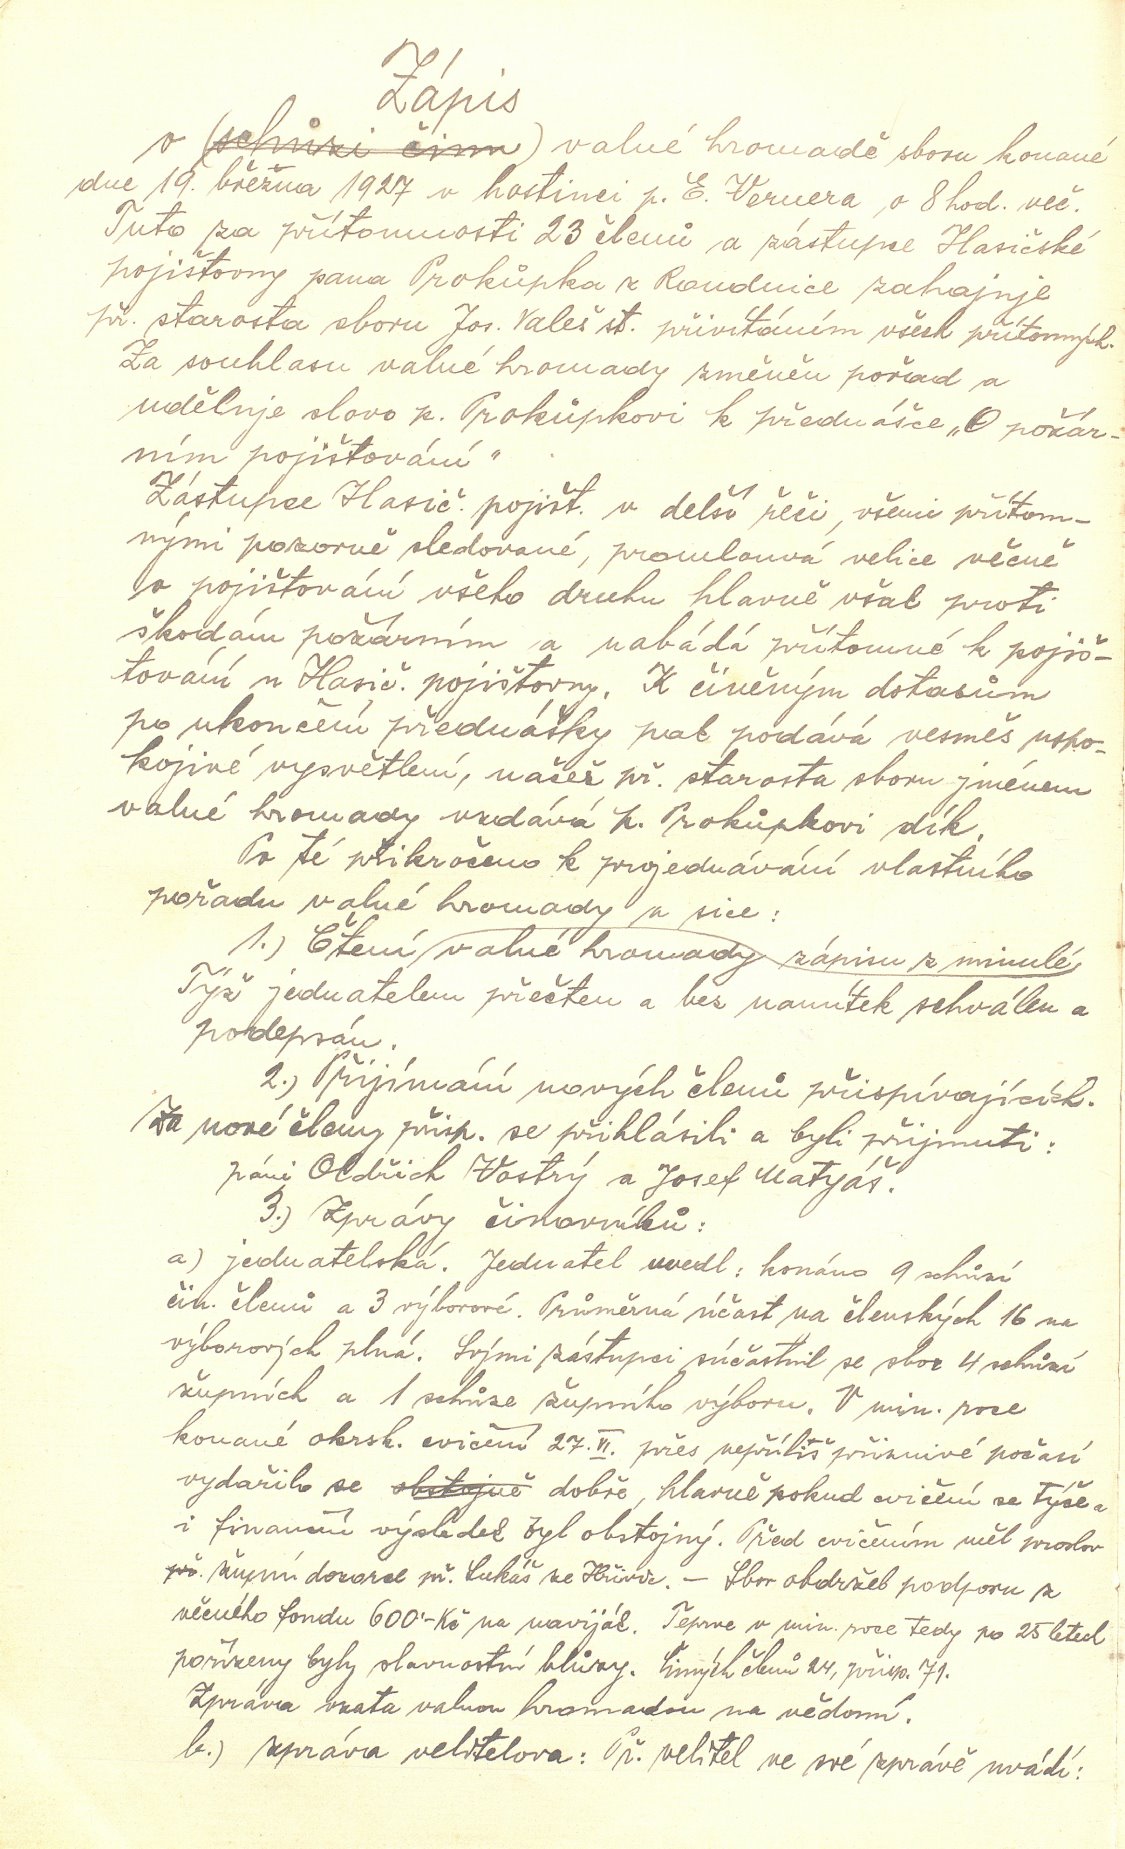 Zápis
o (schůzi činn) valné hromadě sboru konané
dne 19. března 1927 v hostinci p. E. Vernera, o 8 hod. več.
Tuto za přítomnosti 23 členů a zástupce Hasičské
pojišťovny pana Prokůpka z Roudnice zahajuje
př. starosta sboru Jos. Valeš st. přivítáním všech přítomných.
Za souhlasu valné hromady změněn pořad a
uděluje slovo p. Prokůpkovi k přednášce „O požár-
ním pojišťování"
Zástupce Hasič. pojišť. v delší řeči, všemi přítom-
nými pozorně sledované, promlouvá velice věcně
o pojišťování všeho druhu hlavně však proti
škodám požárním a nabádá přítomné k pojiš-
ťování u Hasič. pojišťovny. K činěným dotazům
po ukončení přednášky pak podává vesměs uspo-
kojivé vysvětlení, načež př. starosta sboru jménem
valné hromady vzdává p. Prokůpkovi dík.
Po té přikročeno k projednávání vlastního
pořadu valné hromady a sice:
1.) Čtení valné hromady zápisu z minulé
Týž jednatelem přečten a bez námitek schválen a
podepsán.
2.) Přijímání nových členů přispívajících.
Za nové členy přisp. se přihlásili a byli přijmuti:
páni Oldřich Vostrý a Josef Matyáš.
3.) Zprávy činovníků:
a) jednatelská. Jednatel uvedl: konáno 9 schůzí
čin. členů a 3 výborové. Průměrná účast na členských 16 na
výborových plná. Svými zástupci súčastnil se sbor 4 schůzí
župních a 1 schůze župního výboru. V min. roce
konané okrsk. cvičení 27. VI. přes nepříliš příznivé počasí
vydařilo se obstojně dobře, hlavně pokud cvičení se týče a
i finanční výsledek byl obstojný. Před cvičením měl proslov
př. župní dozorce př. Lukáš ze . — Sbor obdržel podporu z
věcného fondu 600·– Kč na naviják. Teprve v min. roce tedy po 25 letech
pořízeny byly slavnostní blůzy. Činných členů 24, přisp. 71.
Zpráva vzata valnou hromadou na vědomí.
b.) zpráva velitelova: Př. velitel ve své zprávě uvádí: